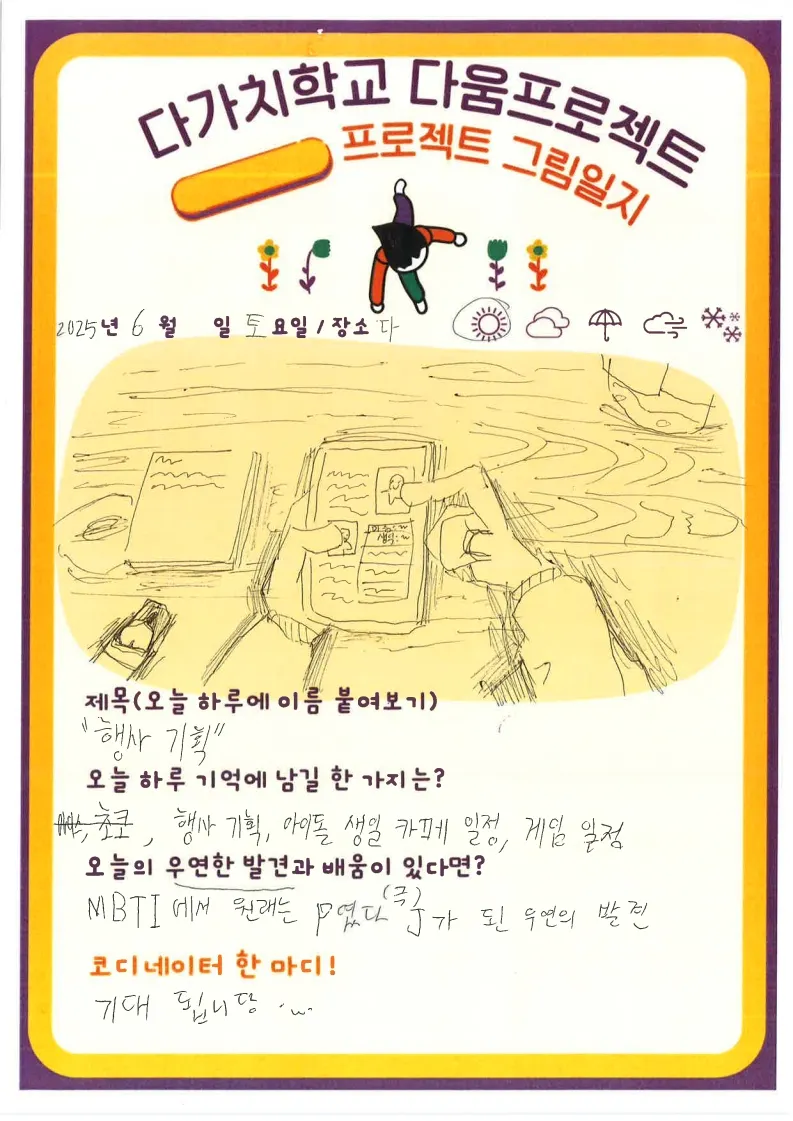 다가치학교 다움프로젝트
프로젝트 그림일지
2025년 6월 일 토요일/장소 다
이름:~
생일:~
제목(오늘 하루에 이름 붙여보기)
"행사 기획"
오늘 하루 기억에 남길 한 가지는?
초코, 행사 기획, 아이돌 생일 카페 일정, 게임 일정
오늘의 우연한 발견과 배움이 있다면?
MBTI에서 원래는 P였다 (극)J가 된 우연의 발견
코디네이터 한 마디!
기대 됩니당 ·ω·